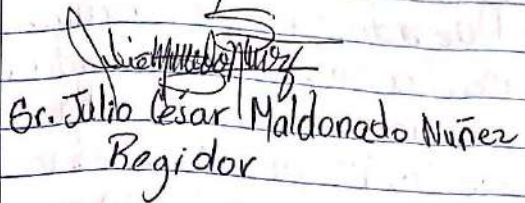 Sr. Julio César Maldonado Nuñez
Regidor